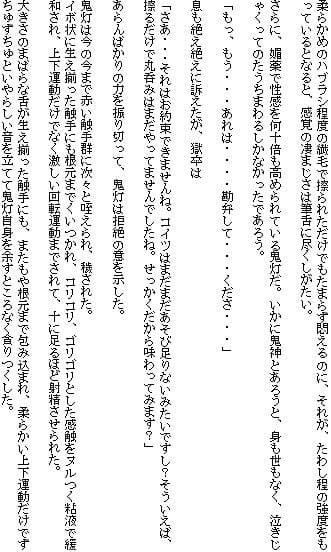 柔らかめのハブラシ程度の繊毛で擦られただけでもたまらず悶えるのに、それが、たわし程の強度をも
っているとなると、感覚の凄まじさは筆舌に尽くしがたい。
さらに、媚薬で性感を何十倍も高められている鬼灯だ。いかに鬼神とあろうと、身も世もなく、泣きじ
ゃくってのたうちまわるしかなかったであろう。
「もっ、もう・・・・あれは・・・・勘弁して・・・くださ・・・」
息も絶え絶えに訴えたが、獄卒は
「さあ・・・それはお約束できませんね。コイツはまだまだあそび足りないみたいですし？そういえば、
擦るだけで丸呑みはまだやってませんでしたね。せっかくだから味わってみます？」
あらんばかりの力を振り切って、鬼灯は拒絶の意を示した。
鬼灯は今の今まで赤い触手群に次々と咥えられ、穢された。
イボ状に生え揃った触手にも根元までくいつかれ、コリコリ、ゴリゴリとした感触をヌルつく粘液で緩
和され、上下運動だけでなく激しい回転運動までされて、十に足るほど射精させられた。
大きさのまばらな舌が生え揃った触手にも、またもや根元まで包み込まれ、柔らかい上下運動だけです
ちゅずちゅといやらしい音を立てて鬼灯自身を余すところなく貪りつくした。